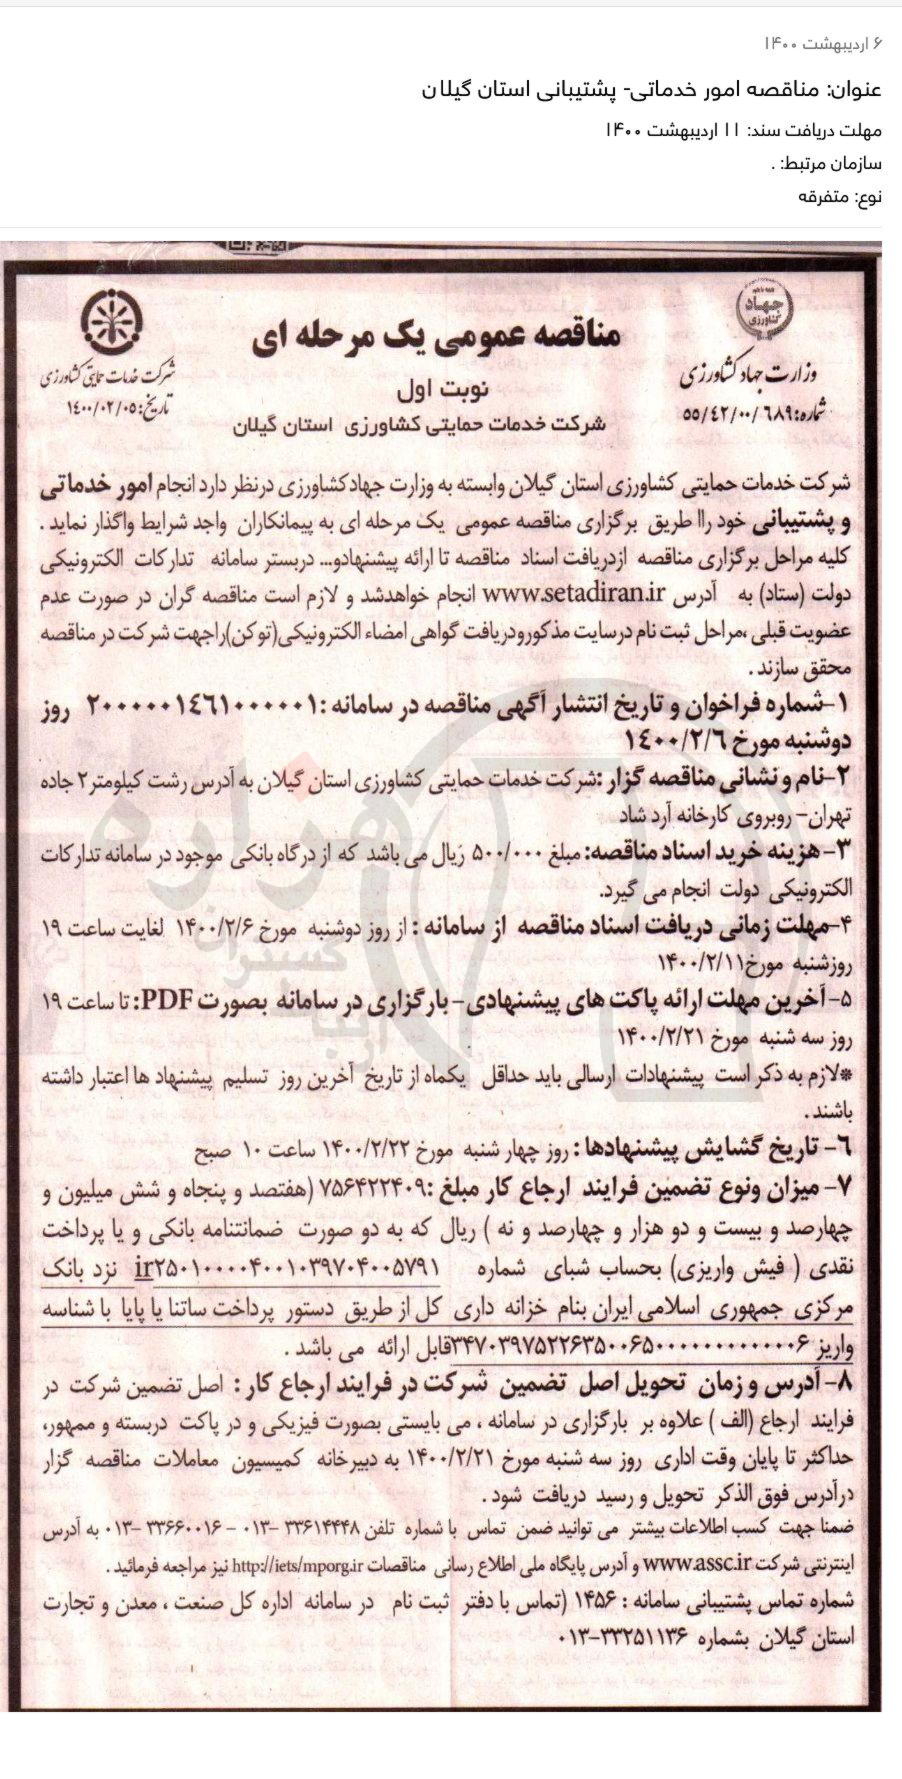 ۶ اردیبهشت ۱۴۰۰
عنوان: مناقصه امور خدماتی- پشتیبانی استان گیلان
مهلت دریافت سند: ۱۱ اردیبهشت ۱۴۰۰
سازمان مرتبط: .
نوع: متفرقه
جهاد
کشاورزی
مناقصه عمومی یک مرحله ای
وزارت جهاد کشاورزی
شرکت خدمات حمایتی کشاورزی
نوبت اول
شماره: ۵۵/۴۲/۰۰/۶۸۹
تاریخ: ۱۴۰۰/۰۲/۰۵
شرکت خدمات حمایتی کشاورزی استان گیلان
شرکت خدمات حمایتی کشاورزی استان گیلان وابسته به وزارت جهادکشاورزی درنظر دارد انجام امور خدماتی
و پشتیبانی خود راا طریق برگزاری مناقصه عمومی یک مرحله ای به پیمانکاران واجد شرایط واگذار نماید .
کلیه مراحل برگزاری مناقصه ازدریافت اسناد مناقصه تا ارائه پیشنهادو... دربستر سامانه تدارکات الکترونیکی
دولت (ستاد) به آدرس www.setadiran.ir انجام خواهدشد و لازم است مناقصه گران در صورت عدم
عضویت قبلی ،مراحل ثبت نام درسایت مذکورودریافت گواهی امضاء الکترونیکی(توکن)راجهت شرکت در مناقصه
محقق سازند .
۱-شماره فراخوان و تاریخ انتشار آگهی مناقصه در سامانه :۲۰۰۰۰۰۱۴۶۱۰۰۰۰۰۱ روز
دوشنبه مورخ ۱۴۰۰/۲/۶
۲-نام و نشانی مناقصه گزار :شرکت خدمات حمایتی کشاورزی استان گیلان به آدرس رشت کیلومتر۲ جاده
تهران- روبروی کارخانه آرد شاد
۳-هزینه خرید اسناد مناقصه: مبلغ ۵۰۰/۰۰۰ ریال می باشد که از درگاه بانکی موجود در سامانه تدارکات
الکترونیکی دولت انجام می گیرد.
۴-مهلت زمانی دریافت اسناد مناقصه از سامانه : از روز دوشنبه مورخ ۱۴۰۰/۲/۶ لغایت ساعت ۱۹
روزشنبه مورخ۱۴۰۰/۲/۱۱
۵- آخرین مهلت ارائه پاکت های پیشنهادی- بارگزاری در سامانه بصورت PDF: تا ساعت ۱۹
روز سه شنبه مورخ ۱۴۰۰/۲/۲۱
*لازم به ذکر است پیشنهادات ارسالی باید حداقل یکماه از تاریخ آخرین روز تسلیم پیشنهاد ها اعتبار داشته
باشند .
۶- تاریخ گشایش پیشنهادها : روز چهار شنبه مورخ ۱۴۰۰/۲/۲۲ ساعت ۱۰ صبح
۷- میزان ونوع تضمین فرایند ارجاع کار مبلغ :۷۵۶۴۲۲۴۰۹ (هفتصد و پنجاه و شش میلیون و
چهارصد و بیست و دو هزار و چهارصد و نه ) ریال که به دو صورت ضمانتنامه بانکی و یا پرداخت
نقدی ( فیش واریزی) بحساب شبای شماره ir۲۵۰۱۰۰۰۰۴۰۰۱۰۳۹۷۰۴۰۰۵۷۹۱ نزد بانک
مرکزی جمهوری اسلامی ایران بنام خزانه داری کل از طریق دستور پرداخت ساتنا یا پایا با شناسه
واریز ۳۴۷۰۳۹۷۵۲۲۶۳۵۰۰۶۵۰۰۰۰۰۰۰۰۰۰۰۰۶قابل ارائه می باشد .
۸- آدرس و زمان تحویل اصل تضمین شرکت در فرایند ارجاع کار : اصل تضمین شرکت در
فرایند ارجاع (الف ) علاوه بر بارگزاری در سامانه ، می بایستی بصورت فیزیکی و در پاکت دربسته و ممهور،
حداکثر تا پایان وقت اداری روز سه شنبه مورخ ۱۴۰۰/۲/۲۱ به دبیرخانه کمیسیون معاملات مناقصه گزار
درآدرس فوق الذکر تحویل و رسید دریافت شود .
ضمنا جهت کسب اطلاعات بیشتر می توانید ضمن تماس با شماره تلفن ۳۳۶۱۴۴۴۸ -۰۱۳ - ۳۳۶۶۰۰۱۶ -۰۱۳ به آدرس
اینترنتی شرکت www.assc.ir و آدرس پایگاه ملی اطلاع رسانی مناقصات http://iets/mporg.ir نیز مراجعه فرمائید .
شماره تماس پشتیبانی سامانه : ۱۴۵۶ (تماس با دفتر ثبت نام در سامانه اداره کل صنعت ، معدن و تجارت
استان گیلان بشماره ۳۳۲۵۱۱۳۶-۰۱۳